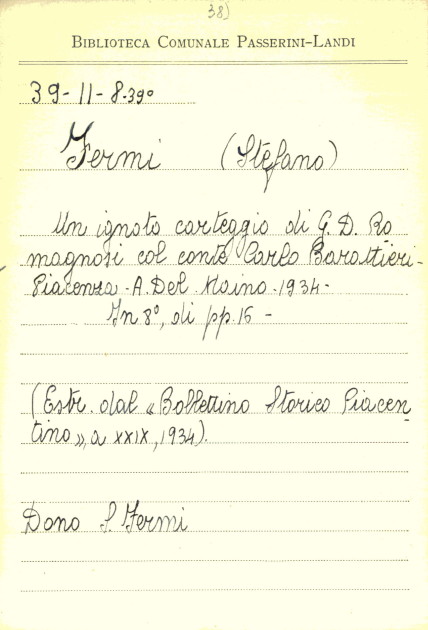 38)
BIBLIOTECA COMUNALE PASSERINI-LANDI
39-11-8.39º
Fermi (Stefano)
Un ignoto carteggio di G. D. Ro
magnosi col conte Carlo Barattieri-
Piacenza - A. Del Maino - 1934 -
In 8º, di pp. 15 -
(Estr. dal « Bollettino Storico Piacen
tino », a XXIX, 1934).
Dono S. Fermi